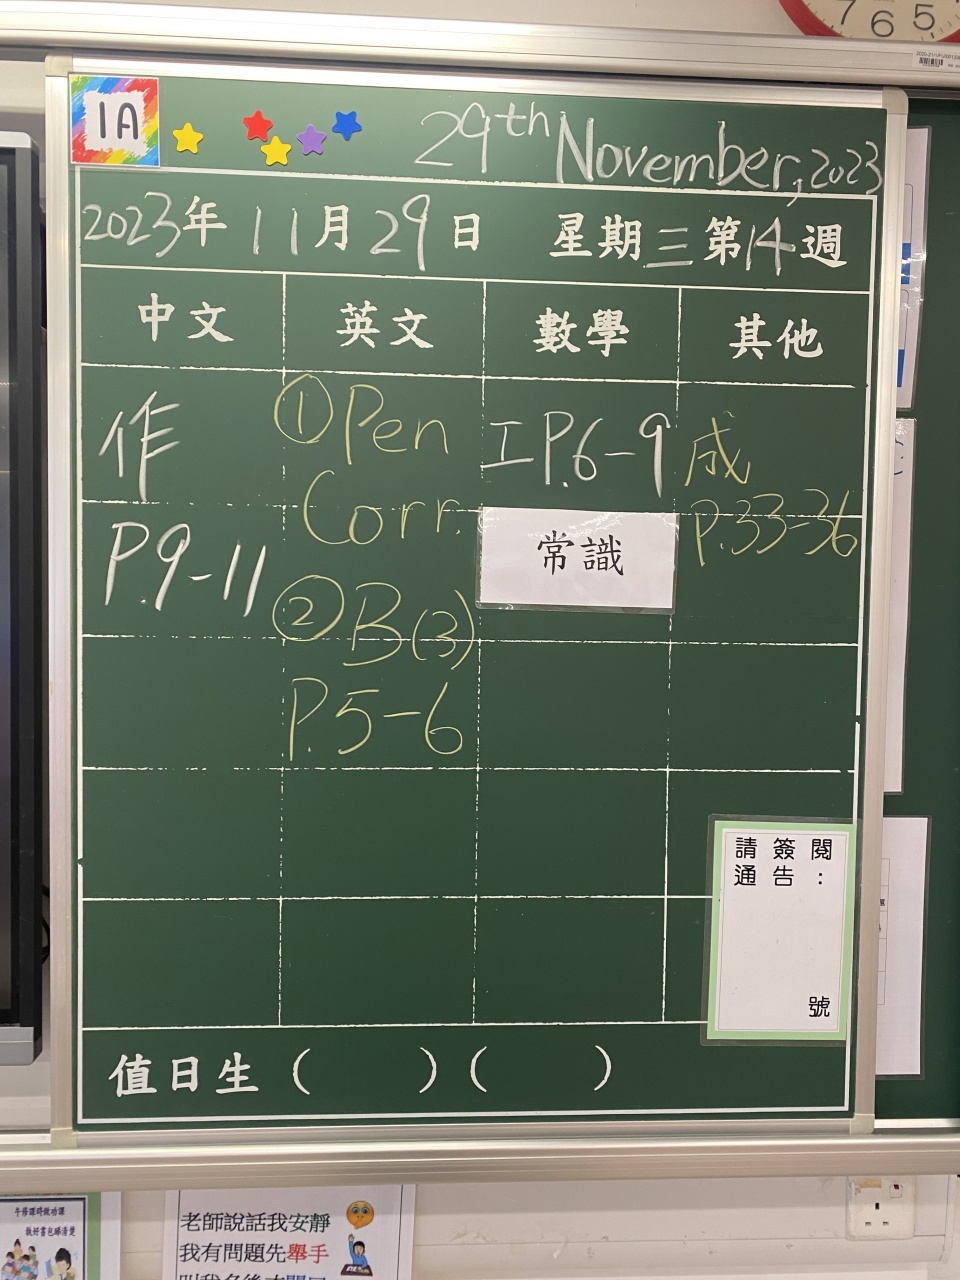 7 6 5
1A
29th November, 2023
2023年 11月 29日 星期三 第14週
中文 英文 數學 其他
作
P.9-11
① Pen
Corr.
② B(3)
P.5-6
工 P.6-9
常識
成
P.33-36
請簽閱
通告：
號
值日生 ( ) ( )
老師說話我安靜
我有問題先舉手